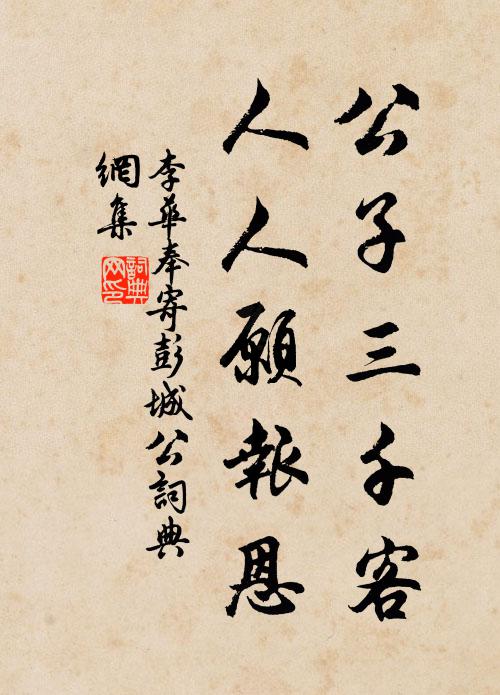 公子三千客
人人願報恩
李華奉寄彭城公詞典
網集
詞典
网印